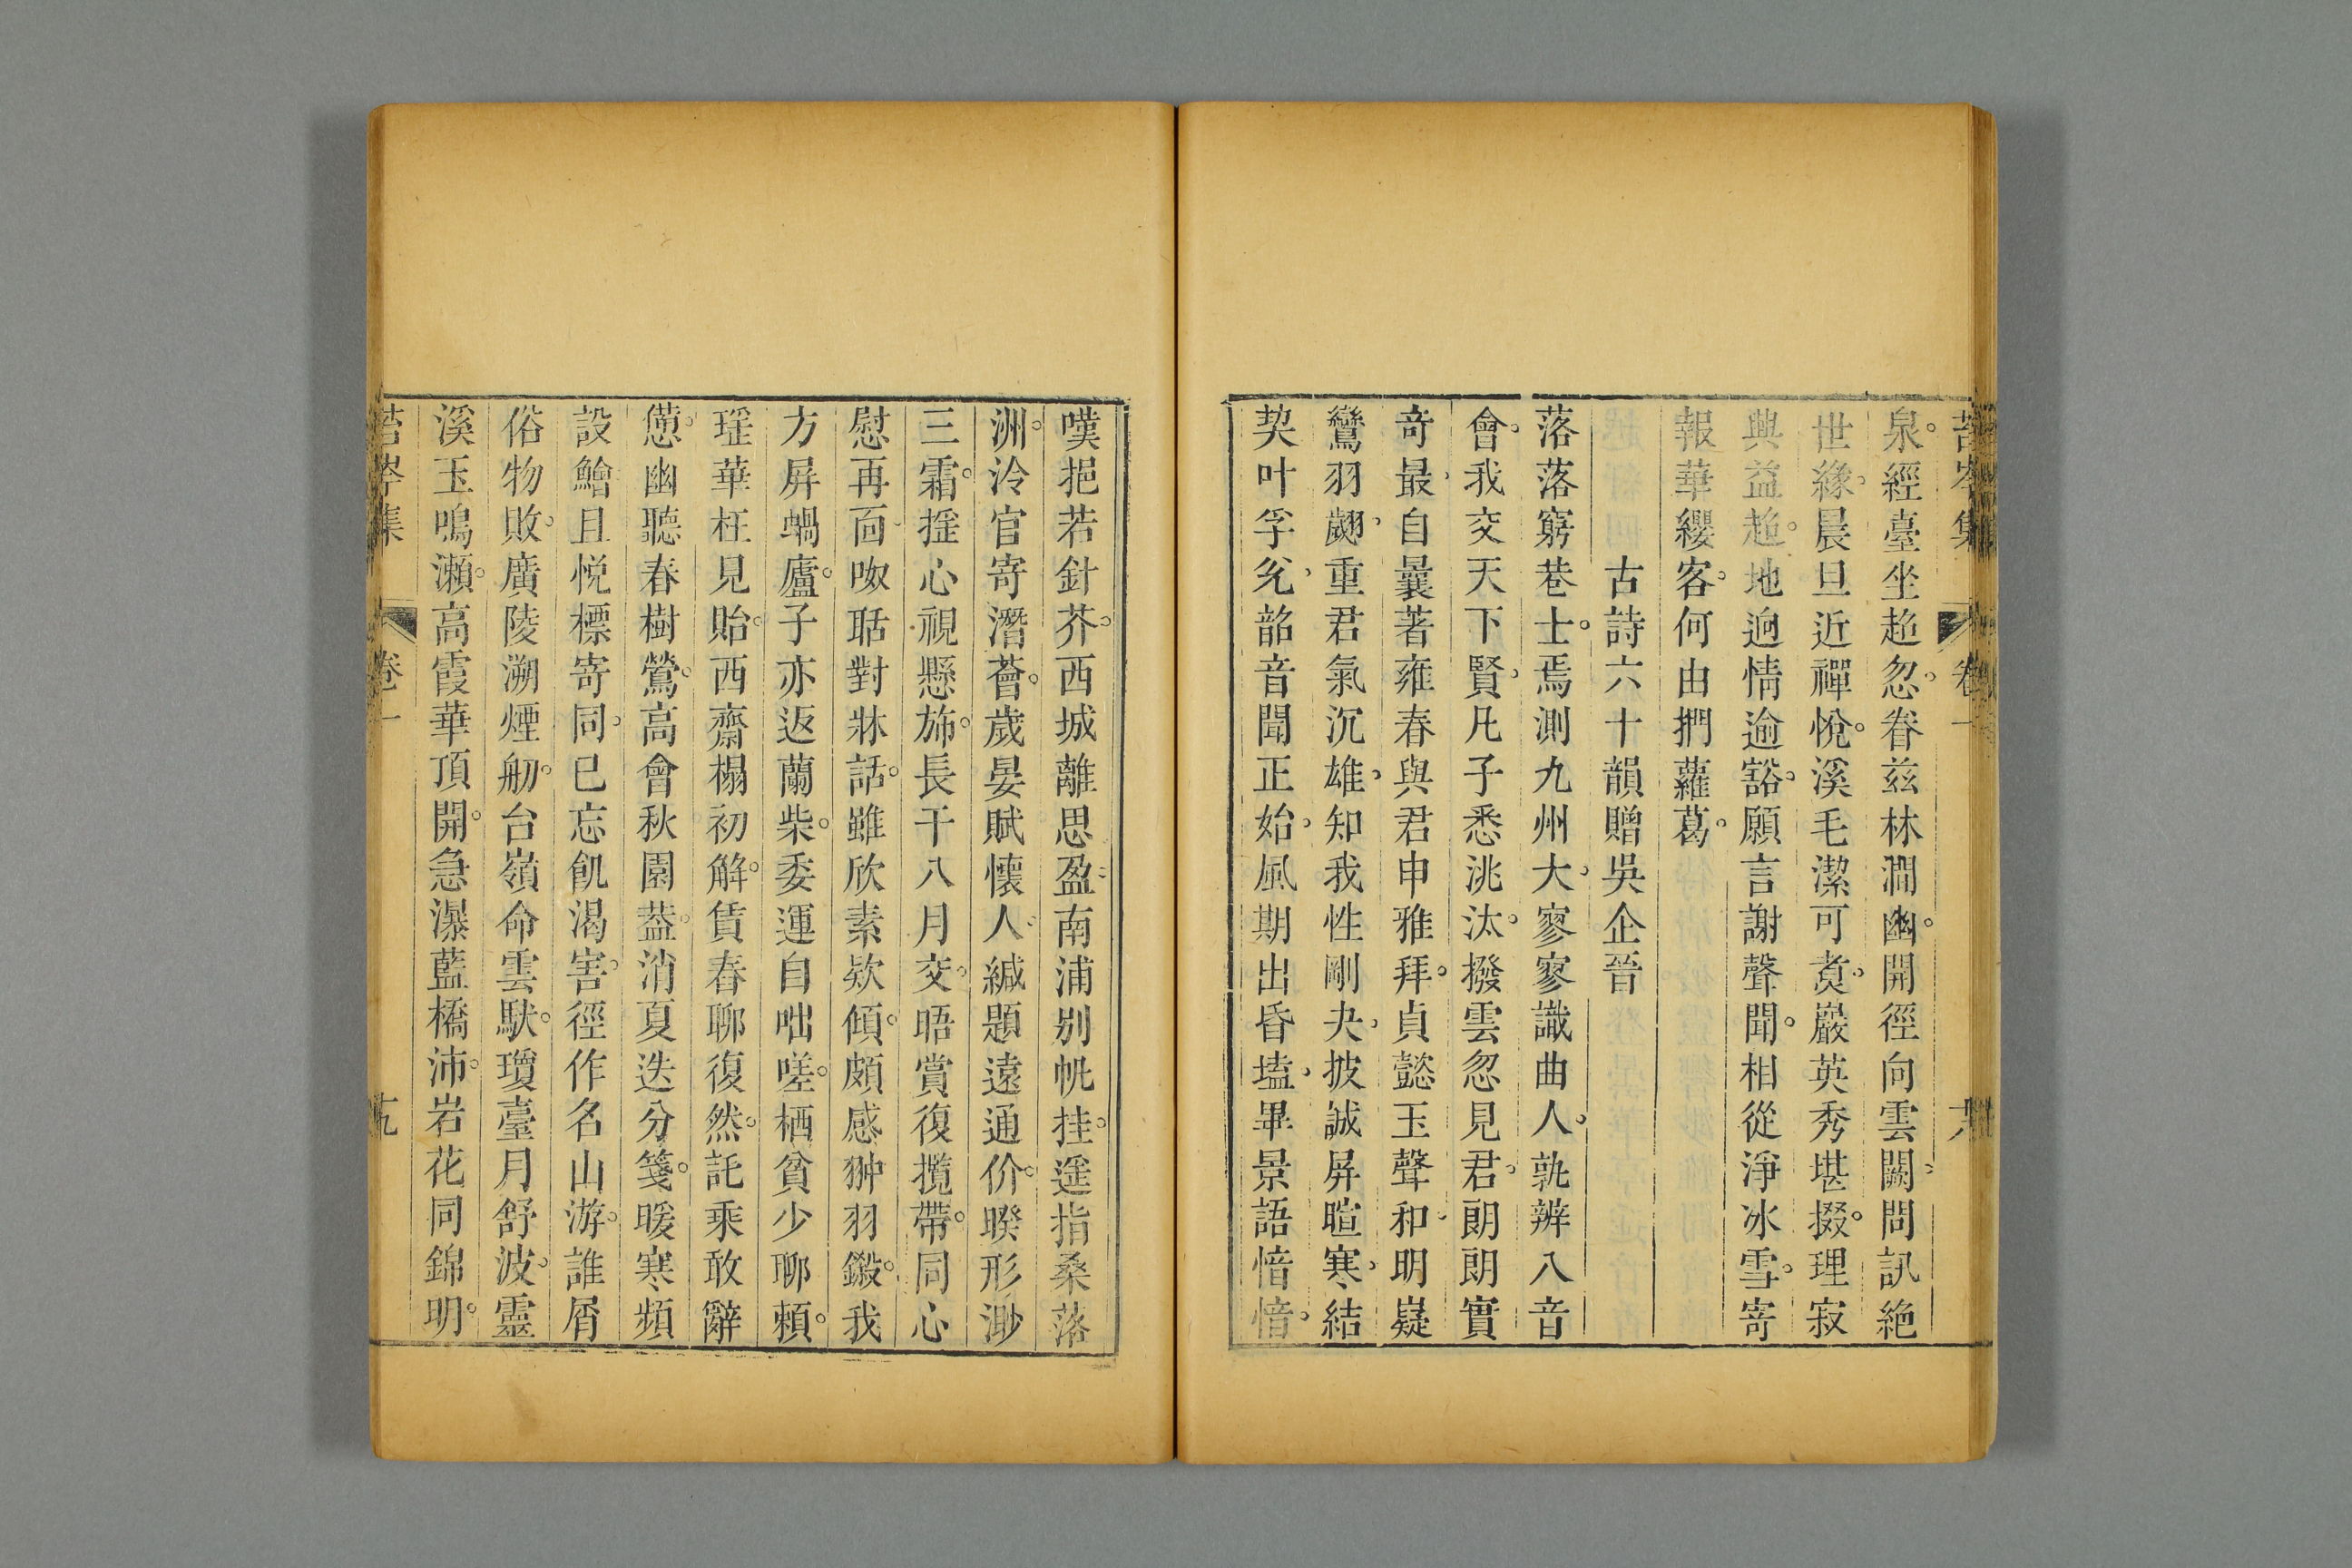 苔岑集 卷一 十八
泉經臺坐趁忽眷茲林澗幽開徑向雲闕問訊絶
世緣晨旦近禪悅溪毛潔可煑巖英秀堪掇理寂
興益趋地逈情逾豁願言謝聲聞相從淨冰雪寄
報華纓客何由捫蘿葛
古詩六十韻贈吳企晉
落落窮巷士焉測九州大寥寥識曲人孰辨八音
會我交天下賢凡子悉洮汰撥雲忽見君朗朗實
竒最自曩著雍春與君申雅拜貞懿玉聲和明嶷
鸞羽翽重君氣沉雄知我性剛夬披誠屏暄寒結
契叶孚兊韶音聞正始風期出昏壒畢景語愔愔
嘆挹若針芥西城離思盈南浦别帆挂遥指桑落
洲泠官寄潛薈歲晏賦懷人緘題遠通价暌形渺
三霜揺心視懸斾長干八月交晤賞復攬帶同心
慰再面呶聒對牀話雖欣素欵傾頗感翀羽鎩我
方屏蝸廬子亦返蘭柴委運自咄嗟栖貧少聊賴
瑶華枉見貽西齋榻初解賃舂聊復然託乘敢辭
憊幽聽春樹鶯高會秋園葢消夏迭分箋暖寒頻
設鱠且悦標寄同已忘飢渴害徑作名山游誰屑
俗物敗廣陵溯煙舠台嶺命雲馱瓊臺月舒波靈
溪玉鳴瀬高霞華頂開急瀑藍橋沛岩花同錦明
苔岑集 卷一 十九